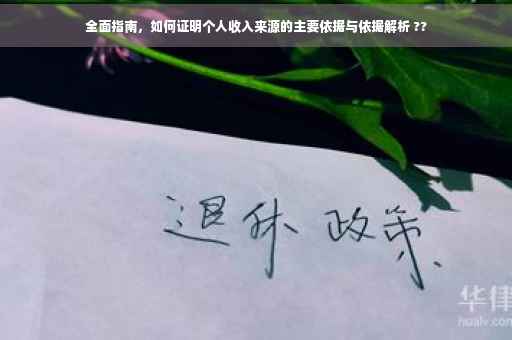 全面指南，如何证明个人收入来源的主要依据与依据解析 ??
退休 政策
华律
hualv.com